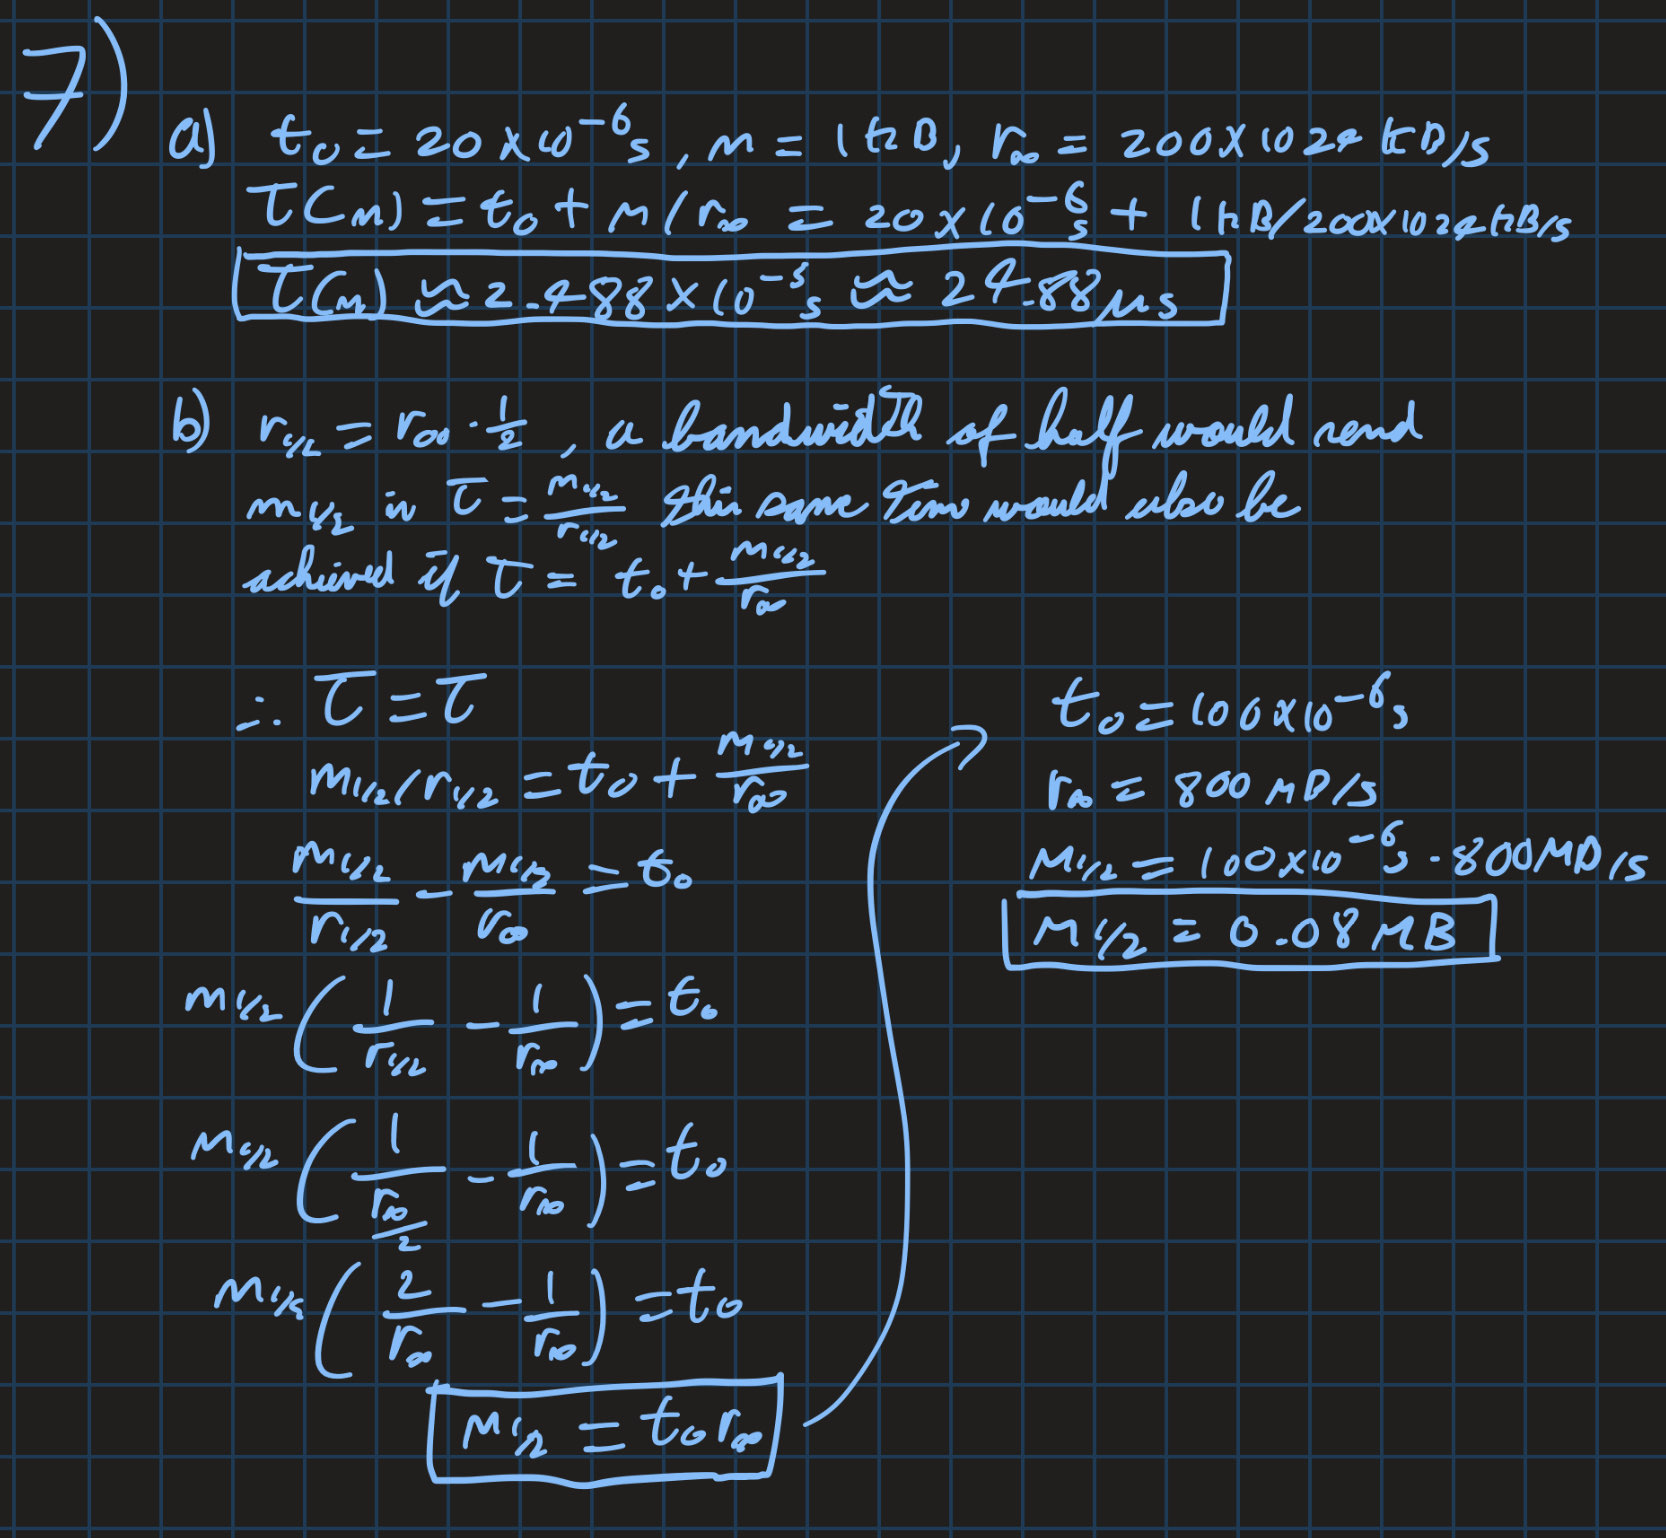 7)
a) t₀ = 20×10⁻⁶s, m = 1kB, r∞ = 200×1024 kB/s
T(m) = t₀ + m/r∞ = 20×10⁻⁶s + 1kB/200×1024kB/s
T(m) ≈ 2.488×10⁻⁵s ≈ 24.88μs
b) r₁/₂ = r∞ · 1/2, a bandwidth of half would send
m₁/₂ in T = m₁/₂/r₁/₂ this same time would also be
achieved if T = t₀ + m₁/₂/r∞
∴ T = T
m₁/₂/r₁/₂ = t₀ + m₁/₂/r∞
m₁/₂/r₁/₂ - m₁/₂/r∞ = t₀
m₁/₂ (1/r₁/₂ - 1/r∞) = t₀
m₁/₂ (1/(r∞/2) - 1/r∞) = t₀
m₁/₂ (2/r∞ - 1/r∞) = t₀
m₁/₂ = t₀ r∞
t₀ = 100×10⁻⁶s
r∞ = 800 MB/s
m₁/₂ = 100×10⁻⁶s · 800MB/s
m₁/₂ = 0.08 MB